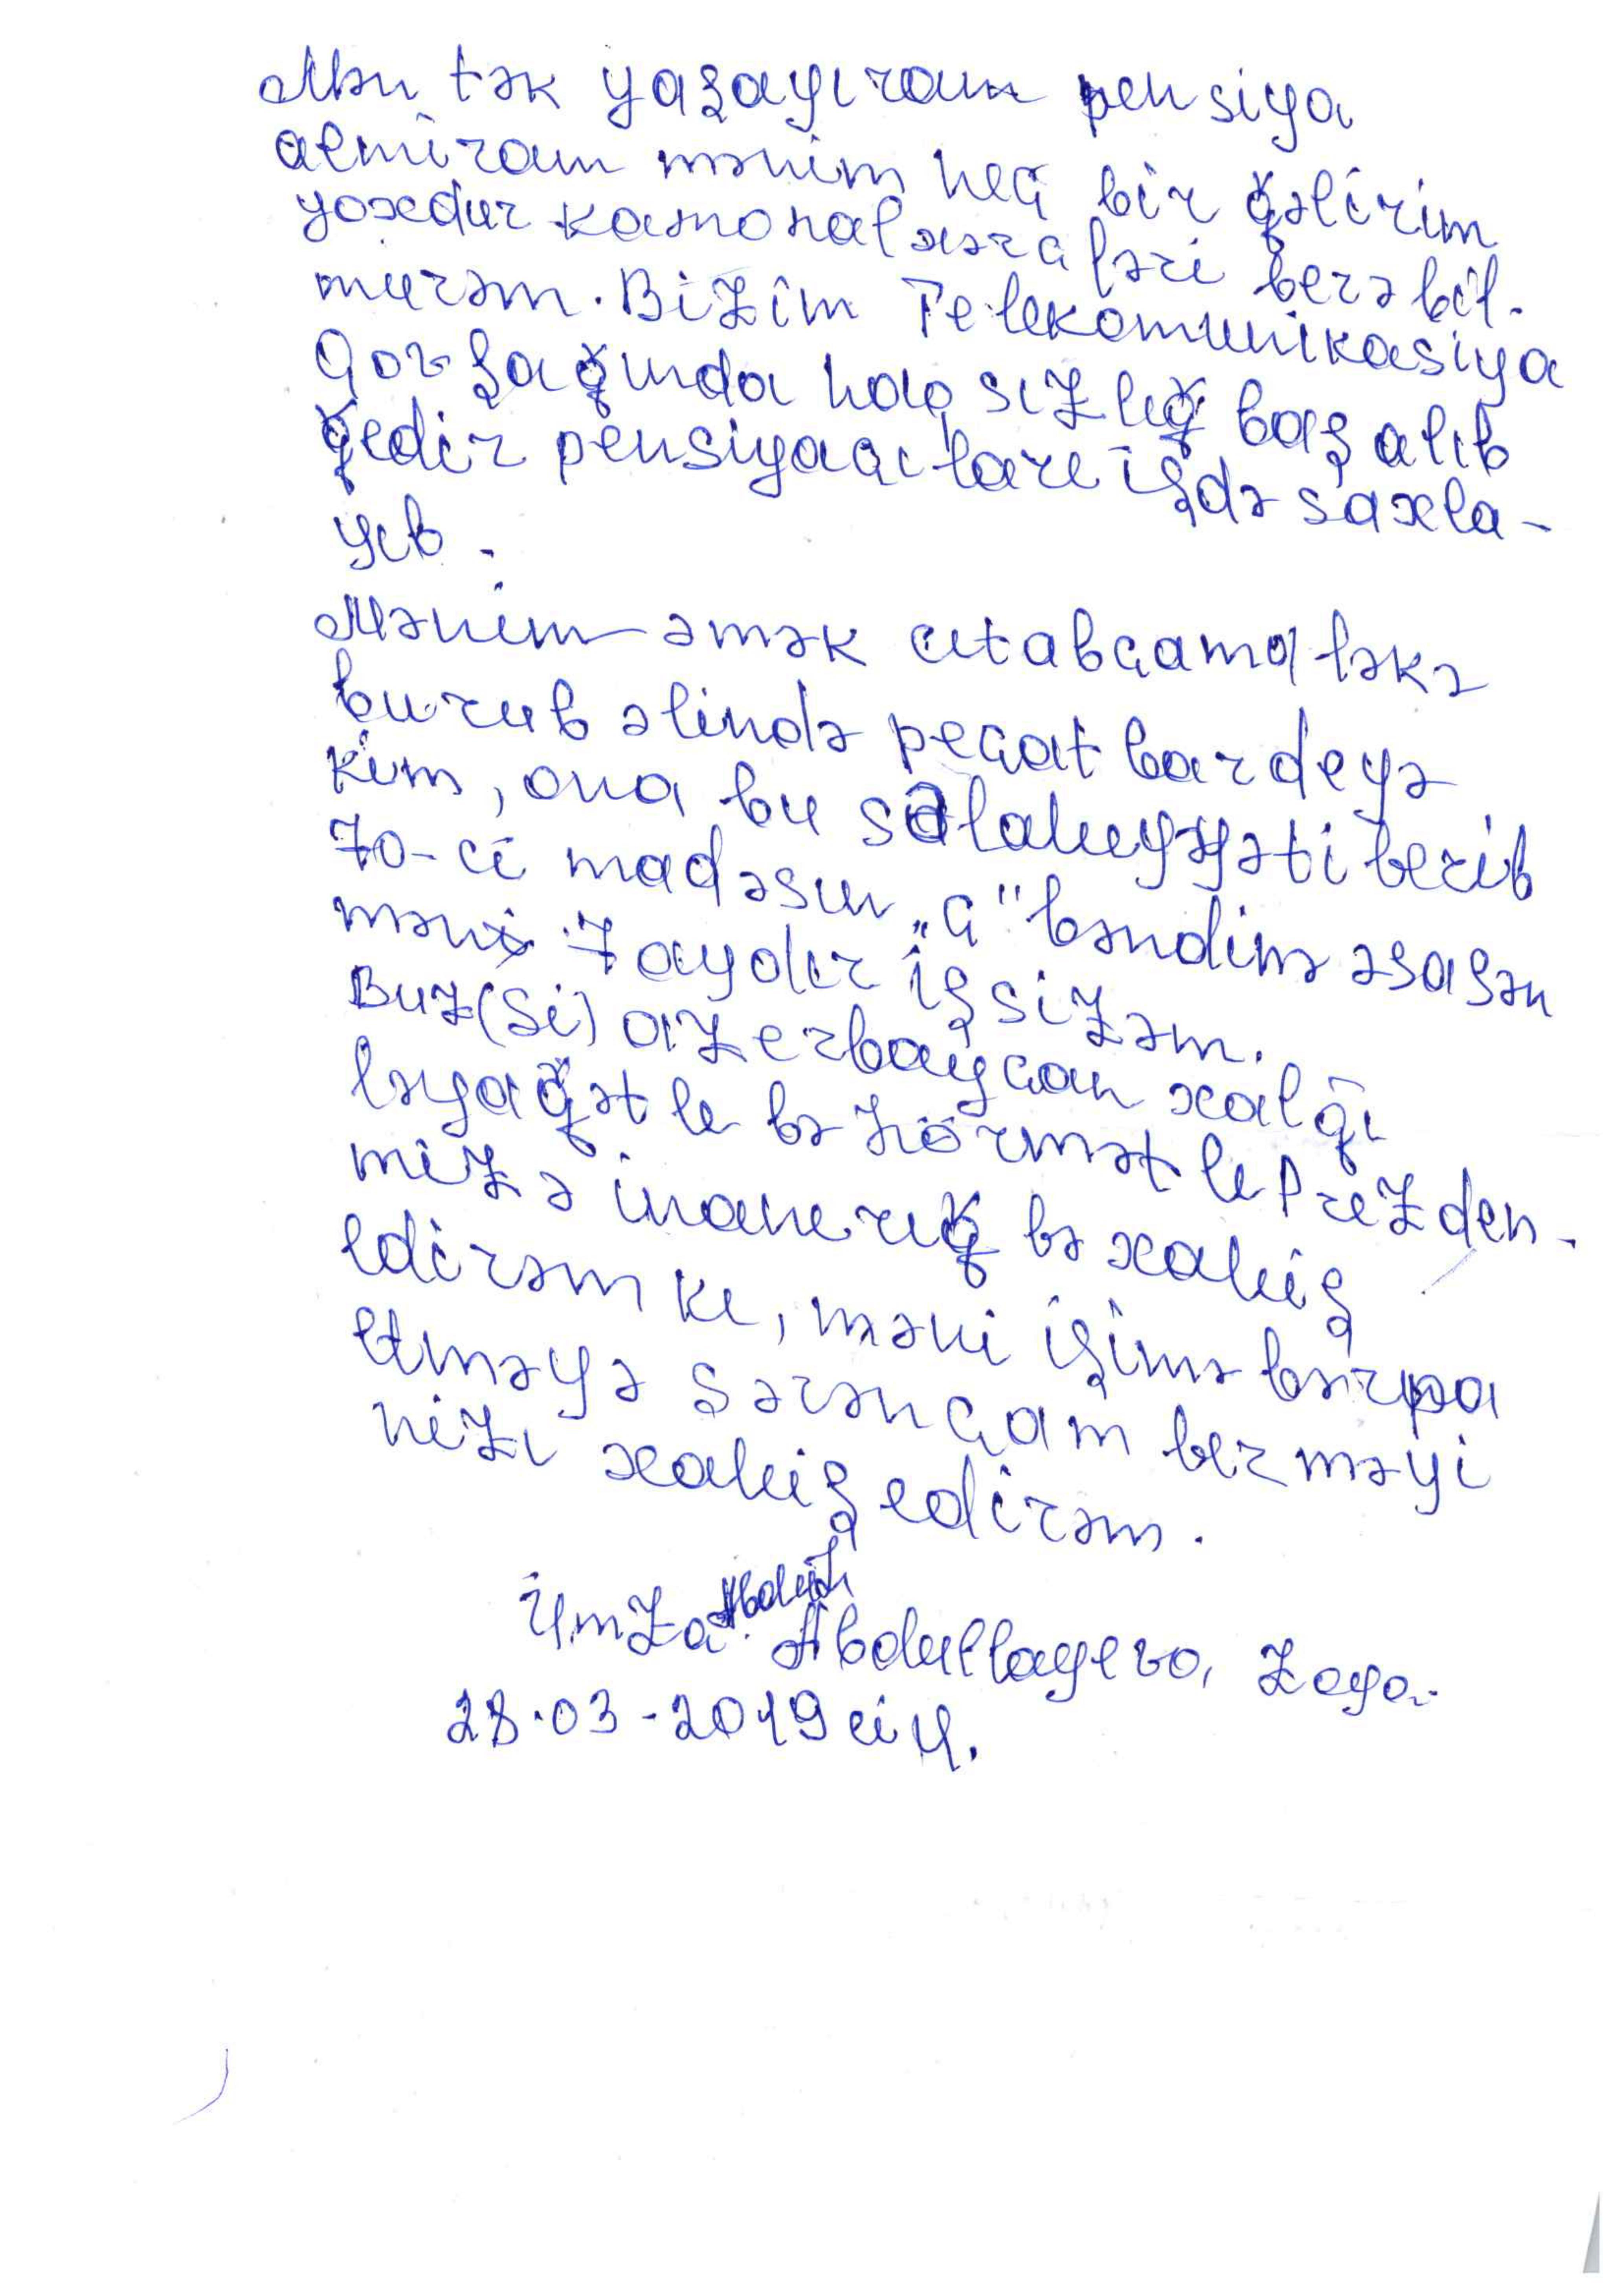 Mən tək yaşayıram pensiya
almıram mənim heç bir gəlirim
yoxdur kamonal xərcləri verə bil-
mürəm. Bizim Telekomunikasiya
Qovşağında haqsızlığ baş alıb
gedir pensiyaçıları işdə saxla-
yıb.
Mənim əmək citabçama ləkə
vurub əlində peçat vardeyə
kim, ona bu səlahiyyəti verib
70-ci madəsin "c" bəndinə əsasən
məni 7 aydır işsizəm.
Buz(Si) azerbaycan xalqı
ləyaqətli və hörmətli Prezden-
mizə inanırıq və xahiş
edirəm ki, məni işimə bərpa
etməyə sərəncam verməyi
nizi xahiş edirəm.
İmza: Abdullayeva Zoya.
28.03-2019 ci il.